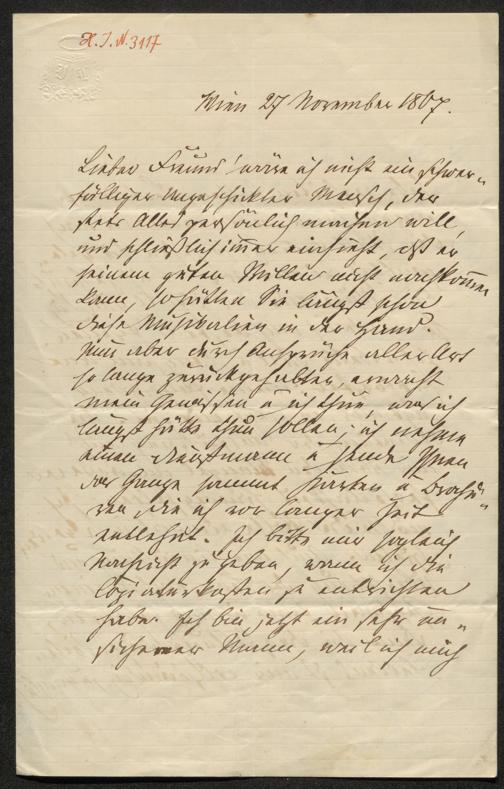 H. I. N. 3117
Wien 27 November 1867.
Lieber Freund! wäre ich nicht ein schwer-
fälliger ungeschickter Mensch, der
stets Alles persönlich machen will,
und schließlich immer einsieht, daß er
seinem guten Willen nicht nachkommen
kann, so hätten Sie längst schon
diese Musikalien in der Hand.
Nun aber durch Ansprüche aller Art
so lange zurückgehalten, erwacht
mein Gewissen u ich thue, was ich
längst hätte thun sollen; ich nehme
einen Dienstmann u sende Ihnen
das Ganze sammt Karten u Brochü-
ren die ich vor langer Zeit
entlehnt. Ich bitte mir sogleich
Nachricht zu geben, wann ich die
Copiaturkosten zu entrichten
habe. Ich bin jetzt ein sehr un-
sicherer Mann, weil ich mich